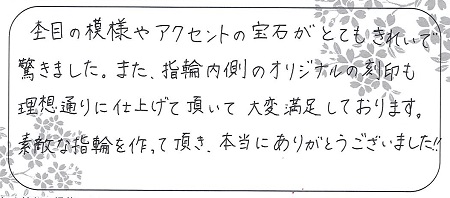 杢目の模様やアクセントの宝石がとてもきれいで
驚きました。また、指輪内側のオリジナルの刻印も
理想通りに仕上げて頂いて大変満足しております。
素敵な指輪を作って頂き、本当にありがとうございました!!